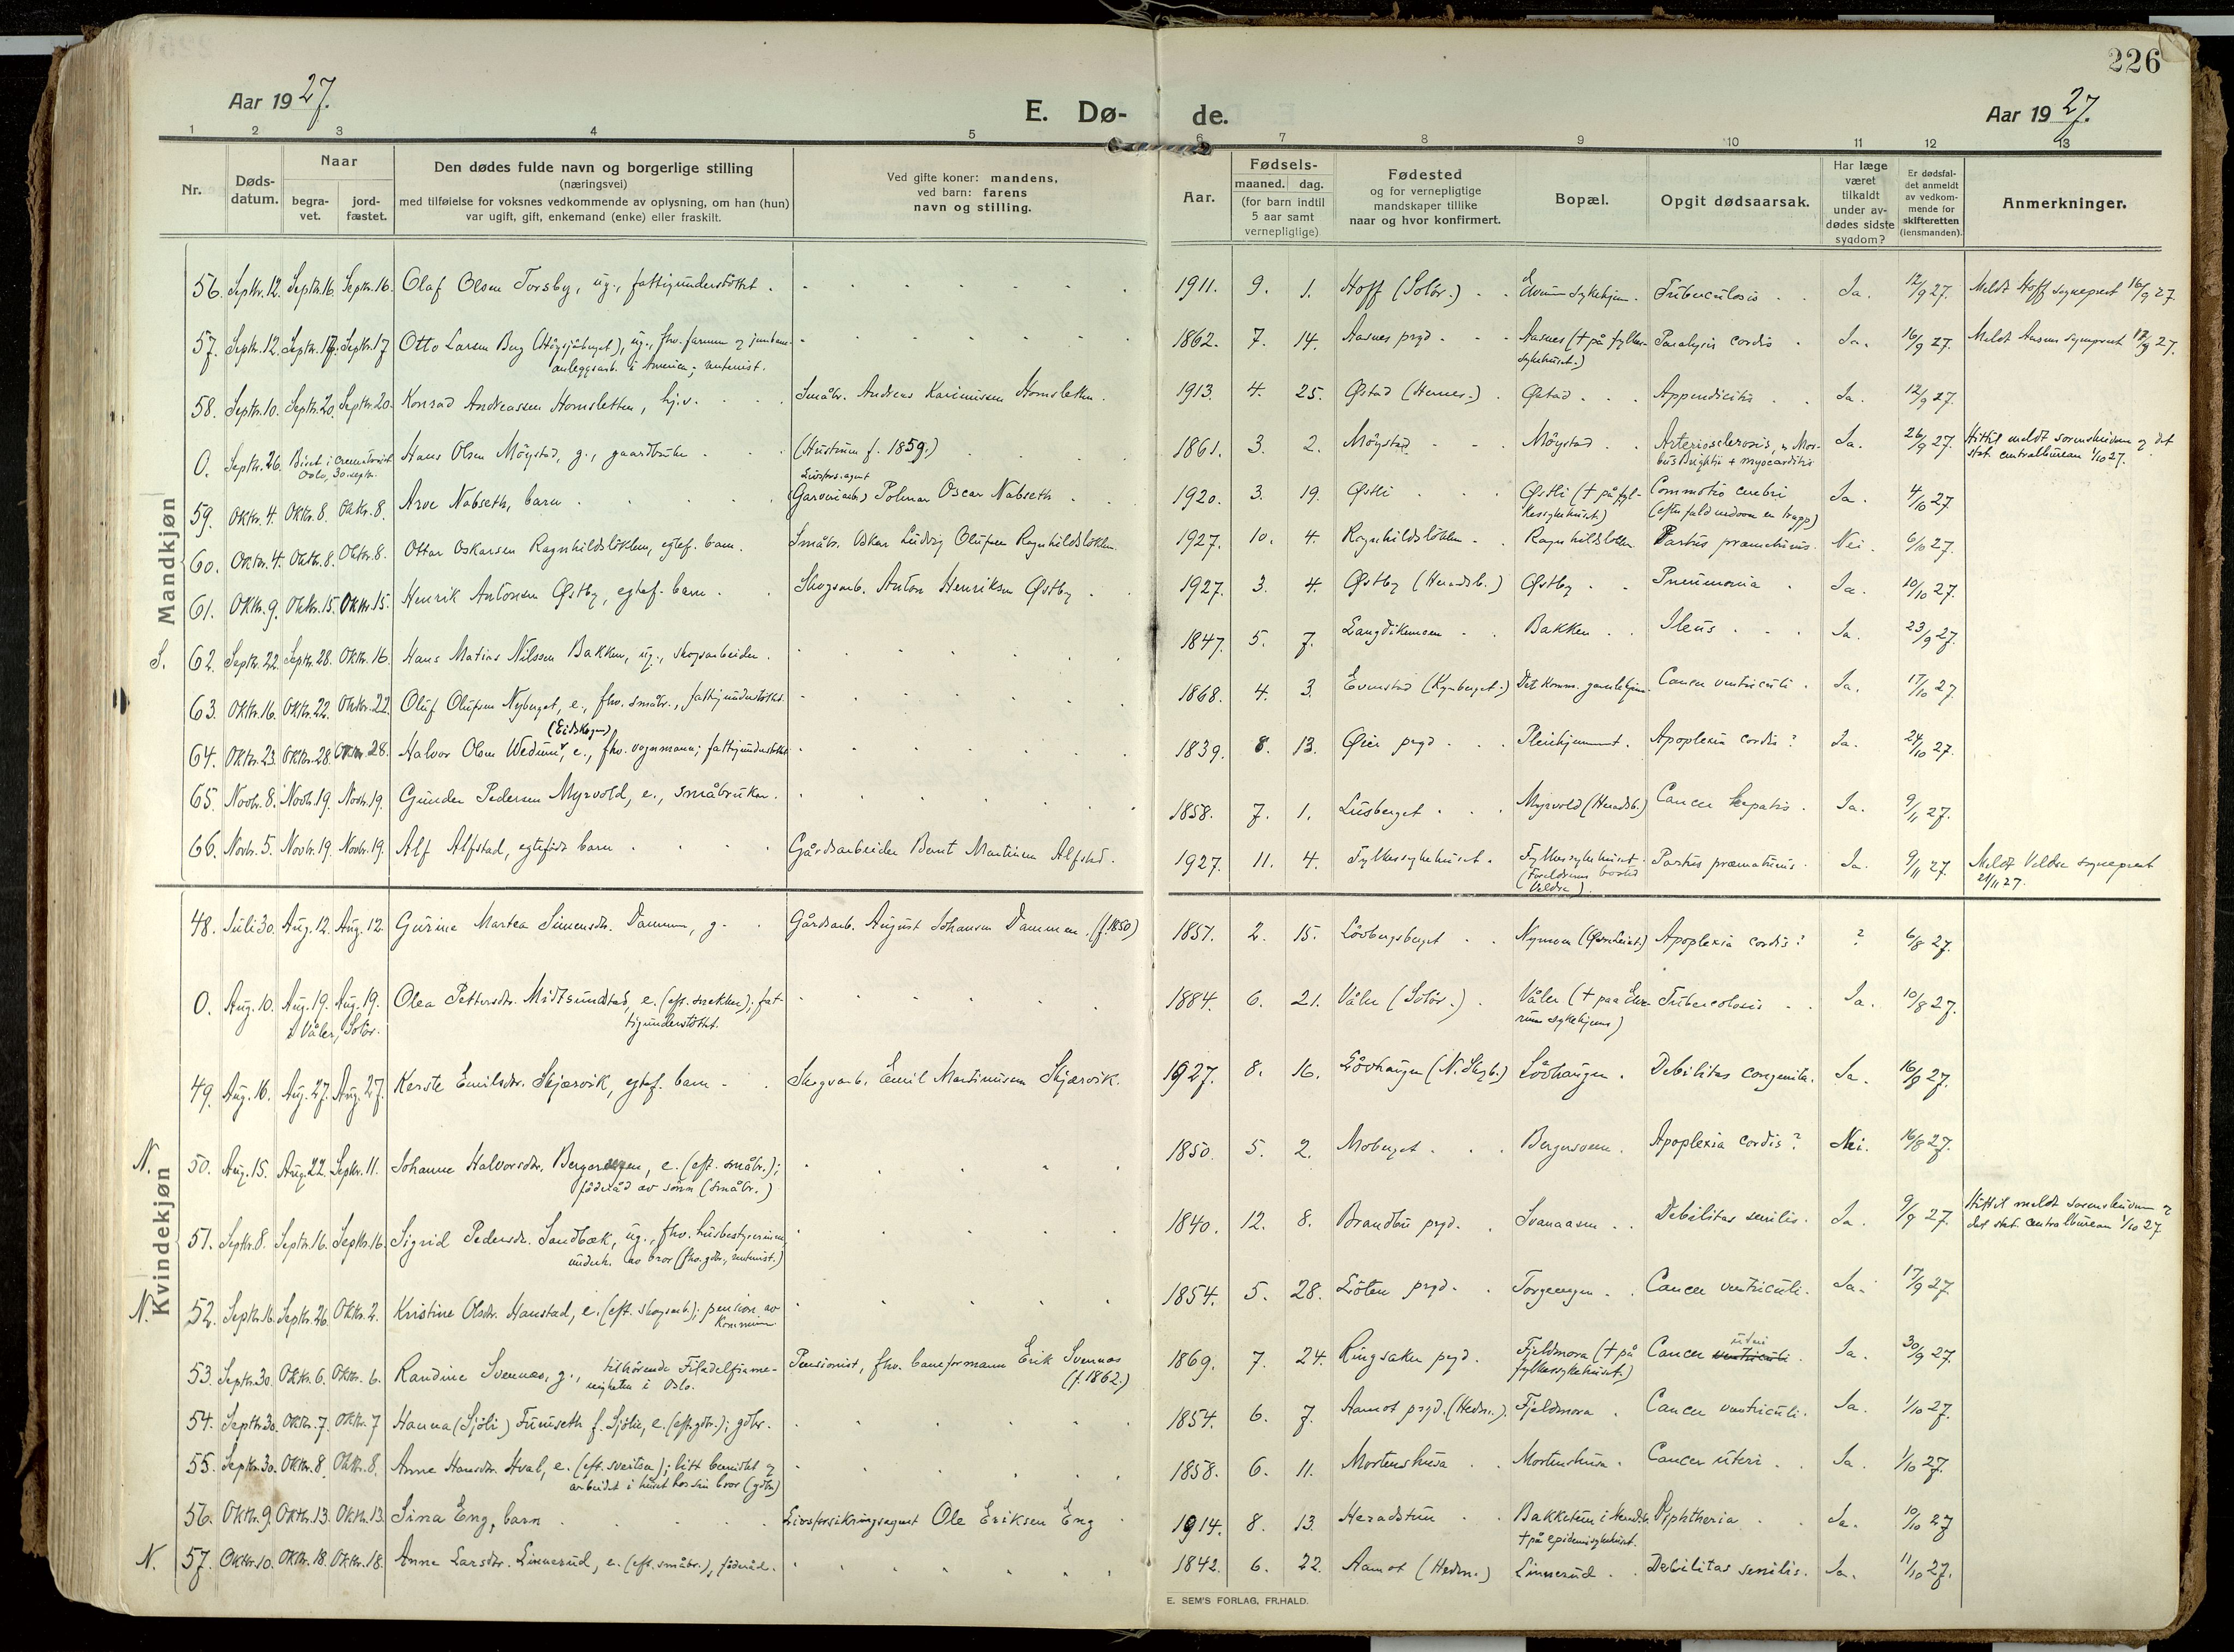 226
Aar 1927.
E. Dø-
de.
Aar 1927.
1 2 3 4 5 6 7 8 9 10 11 12 13
Nr.
Døds-
datum.
Naar
begra-
vet.
jord-
fæstet.
Den dødes fulde navn og borgerlige stilling
(næringsvei)
med tilføielse for voksnes vedkommende av oplysning, om han (hun)
var ugift, gift, enkemand (enke) eller fraskilt.
Ved gifte koner: mandens,
ved barn: farens
navn og stilling.
Aar.
Fødsels-
maaned. dag.
(for barn indtil
5 aar samt
vernepligtige)
Fødested
og for vernepligtige
mandskaper tillike
naar og hvor konfirmert.
Bopæl.
Opgit dødsaarsak.
Har læge
været
tilkaldt
under av-
dødes sidste
sygdom?
Er dødsfal-
det anmeldt
av vedkom-
mende for
skifteretten
(lensmanden).
Anmerkninger.
Mandkjøn
56. Septbr. 12. Septbr. 16. Septbr. 16. Olaf Olsen Torsby, ug., fattigunderstöttet. 1911. 9. 1. Hoff (Solör.) Elverum sykehjem. Tuberculosis Ja. 12/9 27. Meldt Hoff sogneprest 16/9 27.
57. Septbr. 12. Septbr. 17. Septbr. 17 Otto Larsen Berg, ug., fhv. farmer og
anleggsarb. i America; rentenist. 1862. 7. 14. Aasnes prgd. Aasnes († på fylkes-
sykehuset.) Paralysis cordis Ja. 16/9 27. Meldt Aasnes sogneprest 27.
58. Septbr. 10. Septbr. 20. Septbr. 20. Konrad Andreassen Homsletten, hj.v. Småbr. Andreas Karinussen Homsletten. 1913. 4. 25. Østad (Hernes.) Østad Appendicitis Ja. 12/9 27.
0. Septbr. 26. Biset i crematoriet
Oslo, 30. septb. Hans Olsen Möystad, g., gaardbruker (Hustruen f. 1859.) 1861. 3. 2. Möystad Möystad Arteriosclerosis, Mor-
bus Brightii + myocarditis Ja. 26/9 27. Hittil meldt sorenskriveren og det
stat. centralbureau 1/10 27.
59. Oktbr. 4. Oktbr. 8. Oktbr. 8. Arve Nabseth, barn Livsfors.agent
(Garveriarb.) Polmar Oscar Nabseth 1920. 3. 19. Østli Østli († på fyl-
kessykehuset) Commotio cerebri
(efter fald nedover en trapp) Ja. 4/10 27.
60. Oktbr. 4. Oktbr. 8. Oktbr. 8. Ottar Oskarsen Ragnhildslökken, egtef. barn. Småbr. Oskar Ludvig Olufsen Ragnhildslökken. 1927. 10. 4. Ragnhildslökken Ragnhildslökken Partus præmaturus. Nei. 6/10 27.
61. Oktbr. 9. Oktbr. 15. Oktbr. 15. Henrik Antonsen Østby, egtef. barn Skogsarb. Anton Henriksen Østby 1927. 3. 4. Østby (Heradsb.) Østby Pneumonia Ja. 10/10 27.
S. 62. Septbr. 22. Septbr. 28. Oktbr. 16. Hans Matias Nilssen Bakken, ug., skogsarbeider. 1847. 5. 7. Langdikemoen Bakken Ileus Ja. 23/9 27.
63. Oktbr. 16. Oktbr. 22. Oktbr. 22. Oluf Olufsen Nyberget, e., fhv. småbr., fattigunderstöttet 1868. 4. 3. Evenstad (Kynberget.) Det komm. gamlehjem. Cancer ventriculi. Ja. 17/10 27.
64. Oktbr. 23. Oktbr. 28. Oktbr. 28. Halvor Olsen Wedum (Eidskogen), e., fhv. vognmann; fattigunderstöttet 1839. 8. 13. Øier prgd. Pleiehjemmet. Apoplexia cordis? Ja. 24/10 27.
65. Novbr. 8. Novbr. 19. Novbr. 19. Gunder Pedersen Myrvold, e., småbruker. 1858. 7. 1. Lusberget Myrvold (Heradsb.) Cancer hepatis. Ja. 9/11 27.
66. Novbr. 5. Novbr. 19. Novbr. 19. Alf Alfstad, egtefödt barn Gårdsarbeider Bernt Martinsen Alfstad. 1927. 11. 4. Fylkessykehuset. Fylkessykehuset.
(Foreldrenes bosted
Veldre). Partus præmaturus. Ja. 9/11 27. Meldt Veldre sogneprest
21/11 27.
Kvindekjøn
48. Juli 30. Aug. 12. Aug. 12. Gurine Martea Simensdr. Dammen, g. Gårdsarb. August Johansen Dammen. (f. 1850) 1857. 2. 15. Lövbergsberget Nymoen Apoplexia cordis? ? 6/8 27.
0. Aug. 10. Aug. 19. Aug. 19.
i Våler, Solör. Olea Pettersdr. Midtsundstad, e. (eft. snekker); fat-
tigunderstöttet. 1884. 6. 21. Våler (Solör.) Våler († paa Elve-
rum sykehjem) Tuberculosis Ja. 10/8 27.
49. Aug. 16. Aug. 27. Aug. 27. Kerste Emilsdr. Skjærvik, egtef. barn Skogsarb. Emil Martinusen Skjærvik. 1927. 8. 16. Lövhaugen (N. Skgb.) Lövhaugen. Debilitas congenita. Ja. 16/8 27.
N. 50. Aug. 15. Aug. 22. Septbr. 11. Johanne Halvorsdr. Bergersveen, e. (eft. småbr.);
föderåd av sönn (småbr.) 1850. 5. 2. Moberget Bergersveen. Apoplexia cordis? Nei. 16/8 27.
51. Septbr. 8. Septbr. 16. Septbr. 16. Sigrid Pedersdr. Sandbæk, ug., fhv. husbestyrerinne,
underh. av bror (fhv. gdbr., rentenist.) 1840. 12. 8. Brandbu prgd. Svanaasen Debilitas senilis. Ja. 9/9 27. Hittil meldt sorenskriveren og
det stat. centralbureau 1/10 27
N. 52. Septbr. 16. Septbr. 26. Oktbr. 2. Kristine Olsdr. Hanstad, e. (eft. skogsarb.); pension av
kommunen 1854. 5. 28. Löten prgd. Torgeengen Cancer ventriculi. Ja. 17/9 27.
53. Septbr. 30. Oktbr. 6. Oktbr. 6. Randine Svennæs, g., tilhörende Filadelfiame-
nigheten i Oslo. Pensionist, fhv. baneformann Erik Svennæs
(f. 1862.) 1869. 7. 24. Ringsaker prgd. Fjeldmora († på
fylkessykehuset.) Cancer uteri ventriculi. Ja. 30/9 27.
54. Septbr. 30. Oktbr. 7. Oktbr. 7 Hanna (Sjöli) Furuseth f. Sjölie, e. (eft. gdbr.); gdbr. 1854. 6. 7. Aamot prgd. (Hedm.). Fjeldmora Cancer ventriculi. Ja. 1/10 27.
55. Septbr. 30. Oktbr. 8. Oktbr. 8. Anne Hansdr. Hval, e. (eft. sveitser); litt bemidlet og
arbeidet i huset hos sin bror (gdbr.) 1858. 6. 11. Mortenshusa Mortenshusa. Cancer uteri Ja. 1/10 27.
56. Oktbr. 9. Oktbr. 13. Oktbr. 13. Sina Eng, barn Livsforsikringsagent Ole Eriksen Eng 1914. 8. 13. Heradstun Bakketun i Heradsb.
† på epidemisykehuset. Diphtheria Ja. 10/10 27
N. 57. Oktbr. 10. Oktbr. 18. Oktbr. 18. Anne Larsdr. Linnerud, e. (eft. småbr.), föderåd. 1842. 6. 22. Aamot (Hedm.) Linnerud Debilitas senilis. Ja. 11/10 27.
E. SEM'S FORLAG, FR.HALD.